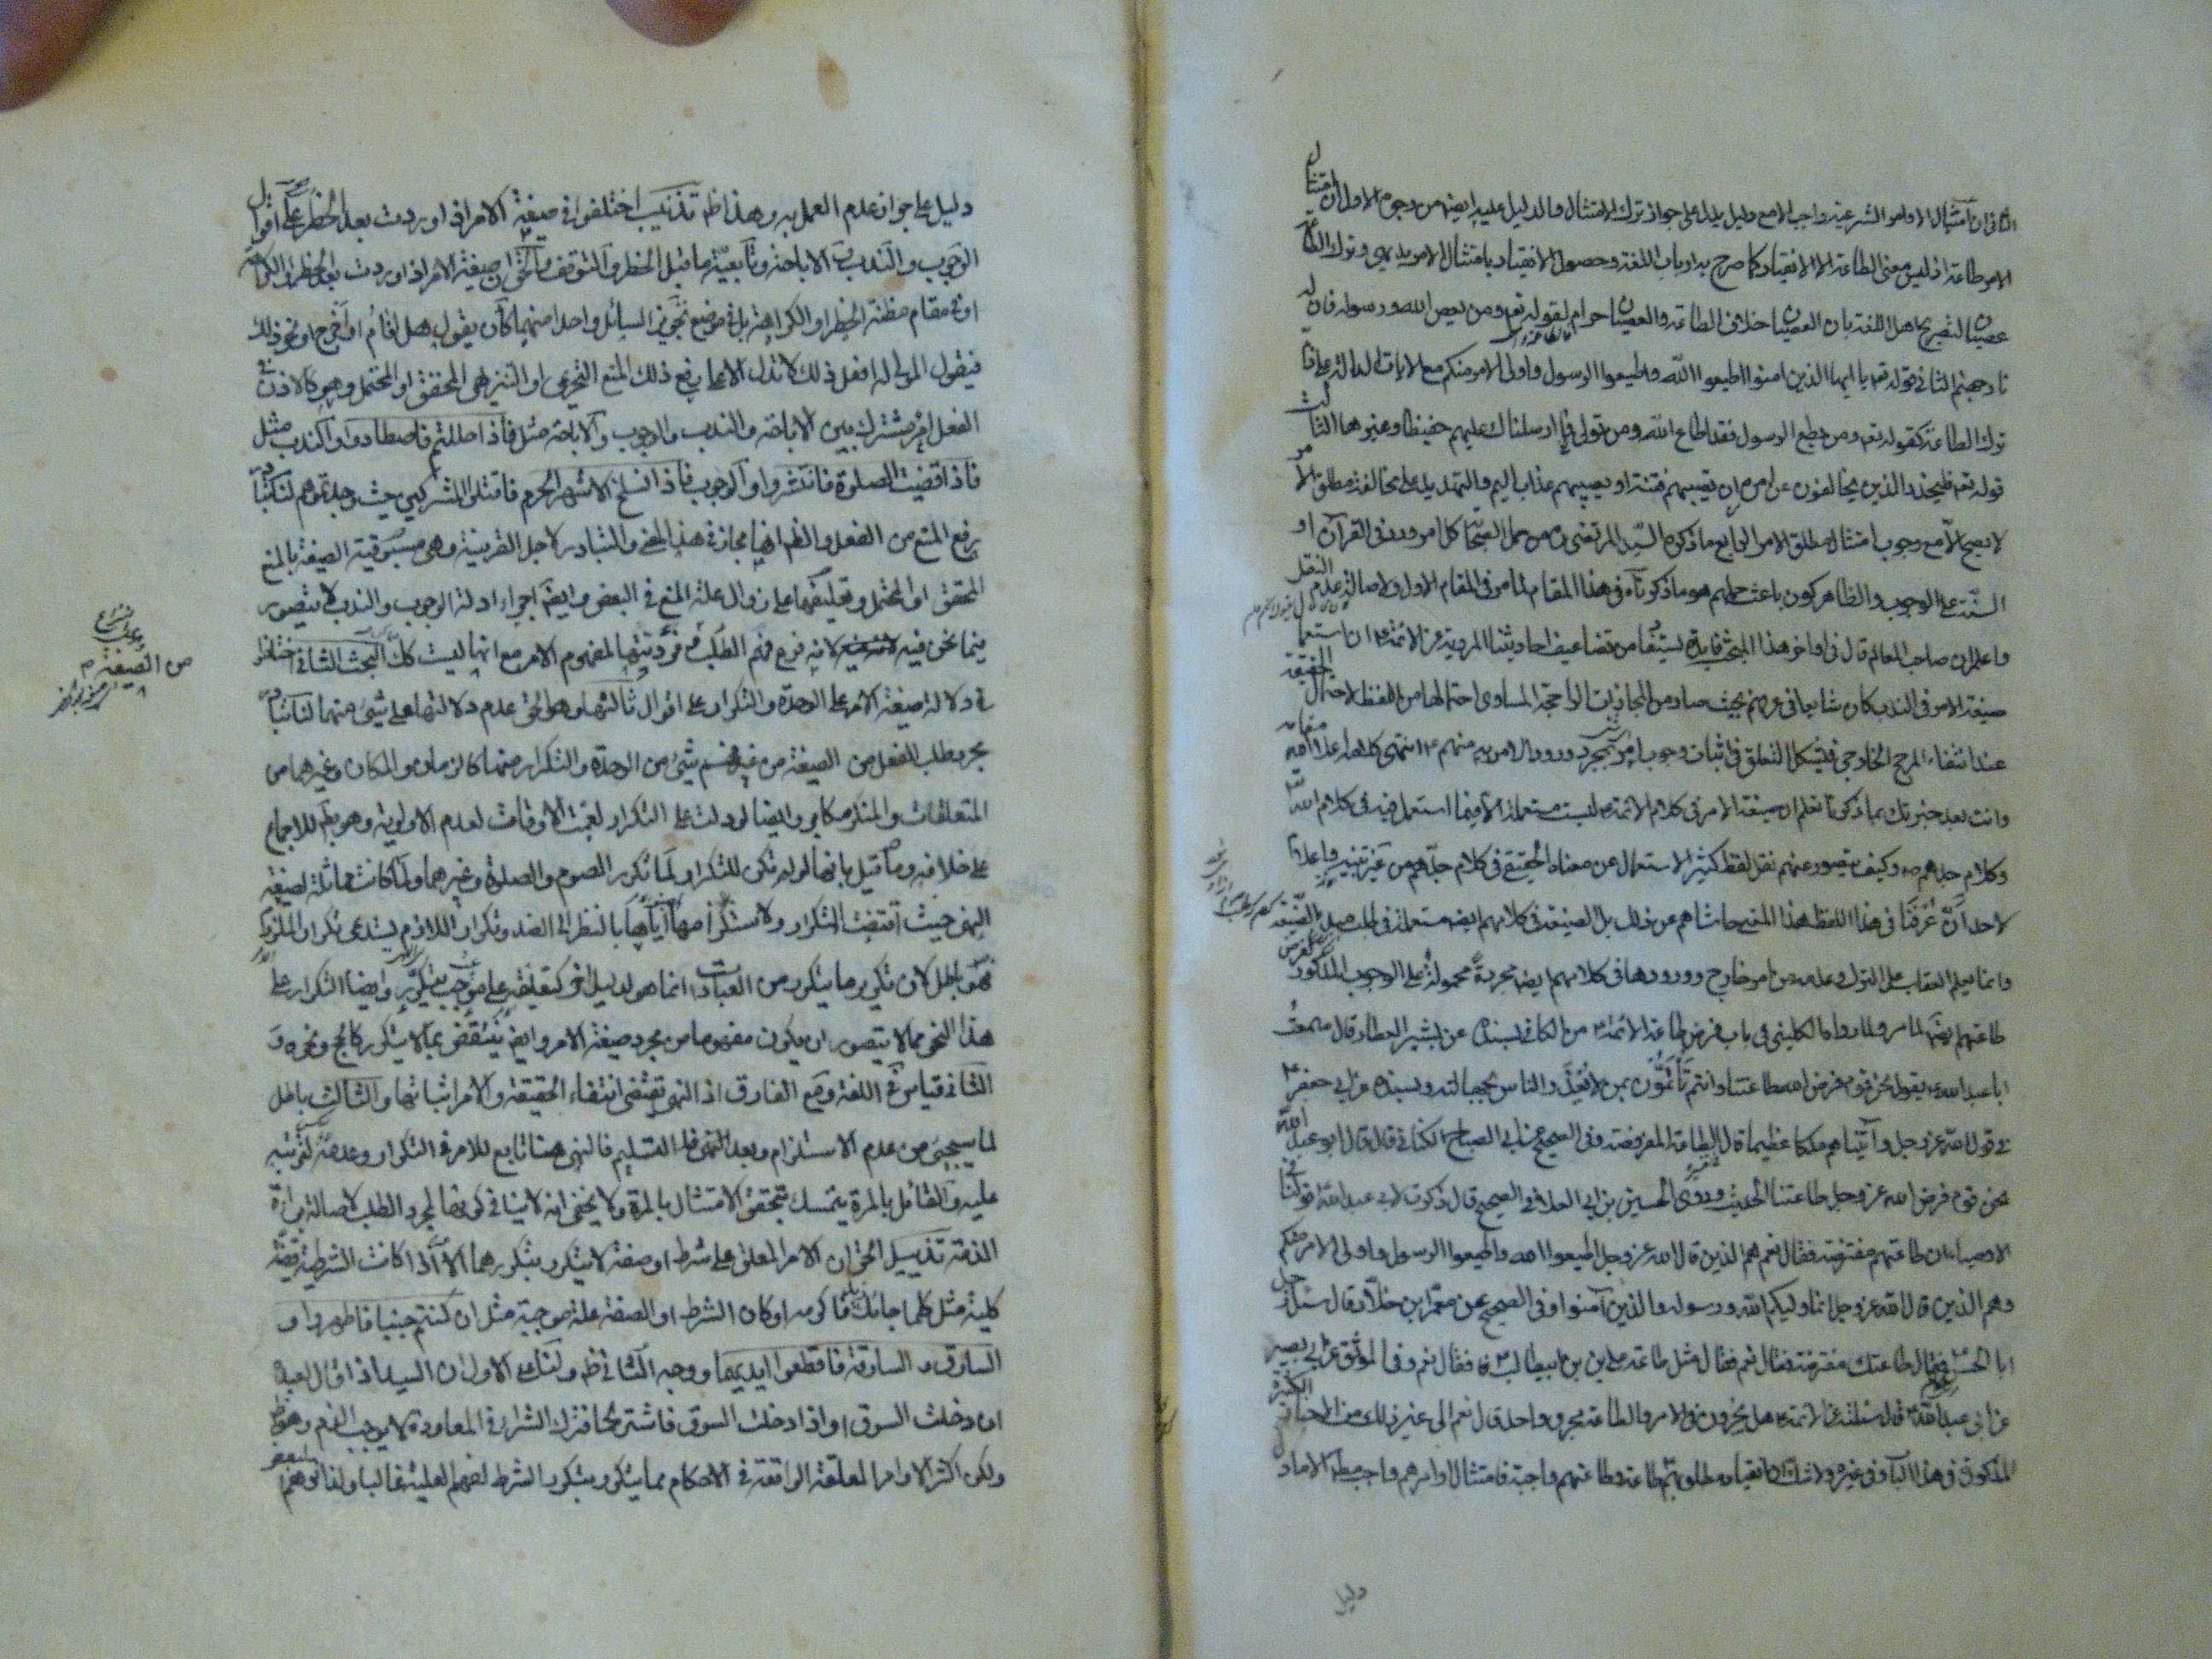 الثاني ان امتثال الاوامر الشرعية واجب الا مع دليل يدل على جواز ترك الامتثال والدليل عليه ايضا من وجوه الاول ان امتثال
الامر طاعة اذ ليس معنى الطاعة الا الانقياد كما صرح به ارباب اللغة وحصول الانقياد بامتثال الامر بديهي وترك الطاعة
عصيان لتصريح اهل اللغة بان العصيان خلاف الطاعة والعصيان حرام لقوله تعه ومن يعص الله ورسوله فان له
نار جهنم الثاني قوله تعه يا ايها الذين امنوا اطيعوا الله واطيعوا الرسول واولى الامر منكم مع الايات الدالة على
ترك الطاعة كقوله تعه ومن يطع الرسول فقد اطاع الله ومن تولى فما ارسلناك عليهم حفيظا وغيرها الثالث
قوله تعه فليحذر الذين يخالفون عن امره ان تصيبهم فتنة او يصيبهم عذاب اليم والتهديد على مخالفة مطلق الامر
لا يصح الا مع وجوب امتثال مطلق الامر الرابع ما ذكره السيد المرتضى من حمل الصحابة كل امر ورد في القرآن او
السنة على الوجوب والظاهر كون باعث حملهم هو ما ذكرناه في هذا المقام لما مر في المقام الاول ولاصالة عدم النقل
واعلم ان صاحب المعالم قال في اواخر هذا المبحث فايدة يستفاد من تضاعيف احاديثنا المروية عن الائمة ان استعمال
صيغة الامر في الندب كان شايعا في عرفهم بحيث صار من المجازات الراجحة المساوى احتمالها من اللفظ لاحتمال الحقيقة
عند انتفاء المرجح الخارجي فيشكل التعلق في اثبات وجوب امر بمجرد ورود الامر به منهم ع انتهى كلامه اعلى الله مقامه
وانت بعد خبرتك بما ذكرنا تعلم ان صيغة الامر في كلام الائمة ليست مستعملة الا فيما استعمل فيه في كلام الله تعه
وكلام جدهم ص وكيف يتصور عنهم نقل لفظ كثير الاستعمال عن معناه الحقيقي في كلام جدهم من غير تنبيه واعلام
لاحد ان عرفنا في هذا اللفظ هذا المعنى حاشاهم عن ذلك بل الصيغة في كلامهم ايضا مستعملة في طلب
وانما يعلم العقاب على الترك وعدمه من امر خارج وورودها في كلامهم ايضا مجردة محمولة على الوجوب المذكور لفرض
طاعتهم ايضا لما مر ولما رواه الكليني في باب فرض طاعة الائمة من الكافي بسنده عن بشير العطار قال سمعت
ابا عبد الله ع يقول نحن قوم فرض الله طاعتنا وانتم تأتمون بمن لا يعذر الناس بجهالته وبسنده عن ابى جعفر ع
في قول الله عز وجل وآتيناهم ملكا عظيما قال الطاعة المفروضة وفي الصحيح عن ابى الصباح الكناني قال قال ابو عبد الله
نحن قوم فرض الله عز وجل طاعتنا الحديث وروى الحسين بن ابى العلا في الصحيح قال ذكرت لابى عبد الله قولنا في
الاوصياء ان طاعتهم مفترضة فقال نعم هم الذين قال الله عز وجل اطيعوا الله واطيعوا الرسول واولى الامر منكم
وهم الذين قال الله عز وجل انما وليكم الله ورسوله والذين آمنوا وفي الصحيح عن معمر ابن خلاد قال سئل رجل
ابا الحسن ع فقال طاعتك مفترضة فقال نعم فقال مثل طاعة على ابن ابيطالب ع فقال نعم وفي الموثق عن ابى بصير
عن ابى عبد الله ع قال سئلته عن الائمة هل يجرون في الامر والطاعة مجرى واحد قال نعم الى غير ذلك من الاخبار الكثيرة
المذكورة في هذا الباب وفي غيره ولا شك ان انقياد مطلوبهم طاعة وطاعتهم واجبة فامتثال اوامرهم واجب
دليل
دليل على جواز عدم العمل به وهذا ظم تذنيب اختلفوا في صيغة الامر اذا وردت بعد الحظر على اقوال
الوجوب والندب والاباحة وتابعية ما قبل الحظر والتوقف والحق ان صيغة الامر اذا وردت بعد الحظر او الكراهة
او في مقام مظنة الحظر او الكراهة بل في موضع تجويز السائل واحدا منهما كأن يقول هل انام او اخرج او نحو ذلك
فيقول المولى له افعل ذلك لا تدل الا على رفع ذلك المنع التحريمى او التنزيهى المحقق او المحتمل وهو كالاذن في
الفعل امر مشترك بين الاباحة والندب والوجوب والاباحة مثل فاذا حللتم فاصطادوا والندب مثل
فاذا قضيت الصلوة فانتشروا والوجوب فاذا انسلخ الاشهر الحرم فاقتلوا المشركين حيث وجدتموهم لنا
رفع المنع من الفعل والظم انها مجاز في هذا المعنى والتبادر لاجل القرينة وهى مسبوقية الصيغة بالمنع
المحقق او المحتمل وتعليقها على زوال علة المنع في البعض وايضا اجراء ادلة الوجوب والندب لا يتصور
فيما نحن فيه لانه فرع فهم الطلب وفرديتها لمفهوم الامر مع انها ليست كك البحث الثاني اختلفوا
في دلالة صيغة الامر على الوحدة والتكرار على اقوال ثالثها وهو الحق عدم دلالتها على شئ منهما لنا تبادر
مجرد طلب الفعل من الصيغة من غير فهم شئ من الوحدة والتكرار منها كالزمان والمكان وغيرهما من
المتعلقات والمنكر مكابر وايضا لو دلت على التكرار لعمت الاوقات لعدم الاولوية وهو بط للاجماع
على خلافه وما قيل بانها لو لم تكن للتكرار لما تكرر الصوم والصلوة وغيرهما ولما كانت مماثلة لصيغة
النهى حيث اقتضت التكرار ولاستلزامها اياها بالنظر الى الضد وتكرار اللازم يستدعى تكرار الملزوم
فهو باطل لان تكرير ما يتكرر من العبادات انما هو لدليل اخر كتعليقه على موجب متكرر وايضا التكرار على
هذا النحو مما لا يتصور ان يكون مفهوما من مجرد صيغة الامر وايضا ينتقض بما لا يتكرر كالحج ونحوه و
الثاني قياس في اللغة ومع الفارق اذ النهى يقتضى انتفاء الحقيقة والامر اثباتها والثالث باطل
لما سيجئ من عدم الاستلزام وبعد التسليم فالنهى هنا تابع للامر في التكرار وعدمه لترتبه
عليه والقائل بالمرة يتمسك بتحقق الامتثال بالمرة ولا يخفى انه لا ينافى كونها لمجرد الطلب لاصالة براءة
الذمة تذييل الحق ان الامر المعلق على شرط او صفة لا يتكرر بتكررهما الا اذا كانت الشرطية قضية
كلية مثل كلما جائك زيد فاكرمه او كان الشرط او الصفة علة موجبة مثل ان كنتم جنبا فاطهروا و
السارق والسارقة فاقطعوا ايديهما ووجه الثاني ظم ولنا على الاول ان السيد اذا قال لعبده
ان دخلت السوق او اذا دخلت السوق فاشتر لحما فترك الشراء في المعاودة لا يوجب الذم وهو ظم
ولكن اكثر الاوامر المعلقة الواقعة في الاحكام مما يتكرر بتكرر الشرط لفهم العلية غالبا
من الصيغة م